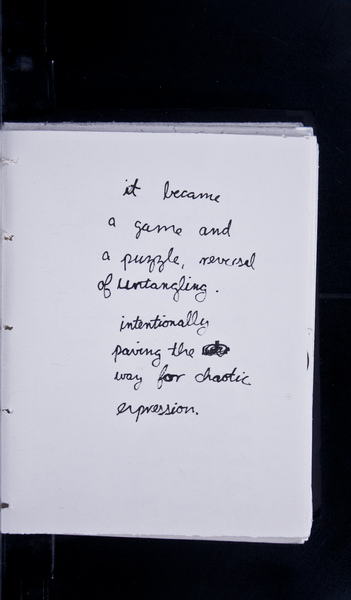 it became
a game and
a puzzle, reversal
of untangling.
intentionally
paving the
way for chaotic
expression.